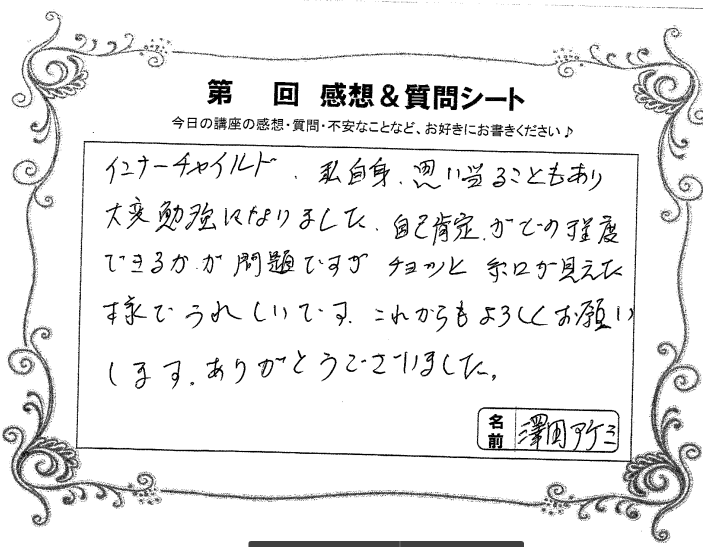 第　回 感想＆質問シート
今日の講座の感想・質問・不安なことなど、お好きにお書きください♪
インナーチャイルド、私自身、思い当ることもあり
大変勉強になりました。自己肯定、がどの程度
できるかが問題ですが チョッと 糸口が見えた
様でうれしいです。これからもよろしくお願い
します。ありがとうございました。
名前 澤田アケミ